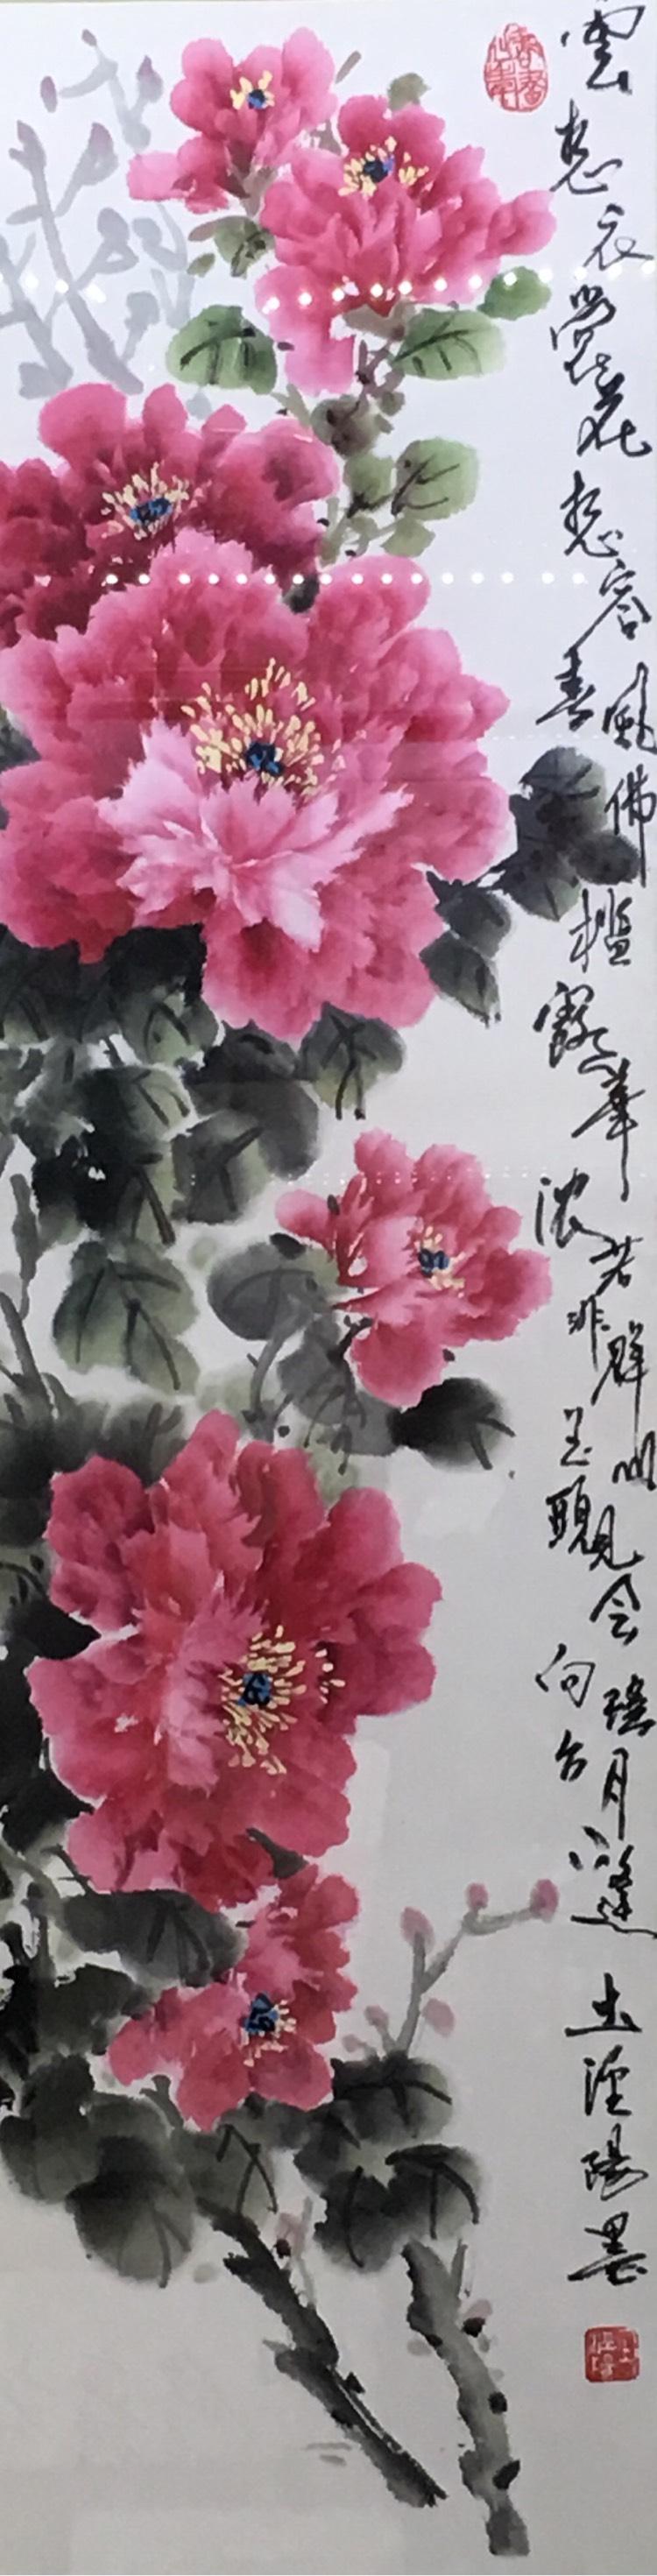 雲想衣裳花想容春風拂檻露華浓若非群玉山頭見会向瑶台月下逢 陽墨